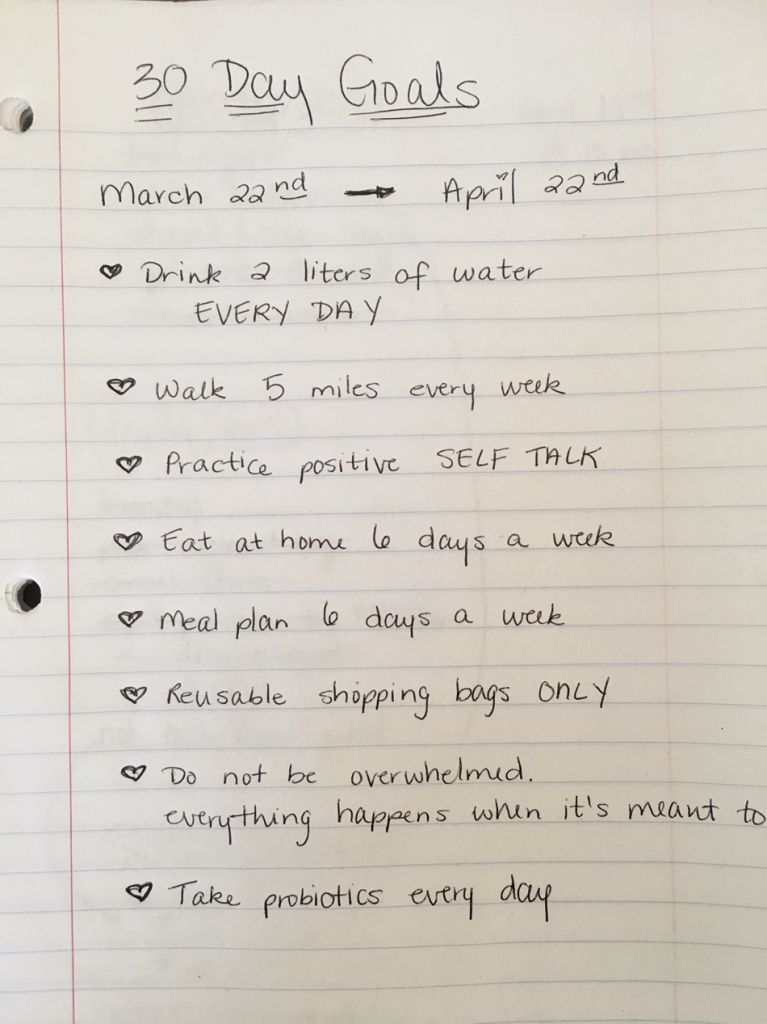 30 Day Goals
March 22nd → April 22nd
♥ Drink 2 liters of water
EVERY DAY
♥ Walk 5 miles every week
♥ Practice positive SELF TALK
♥ Eat at home 6 days a week
♥ Meal plan 6 days a week
♥ Reusable shopping bags ONLY
♥ Do not be overwhelmed.
everything happens when it's meant to
♥ Take probiotics every day